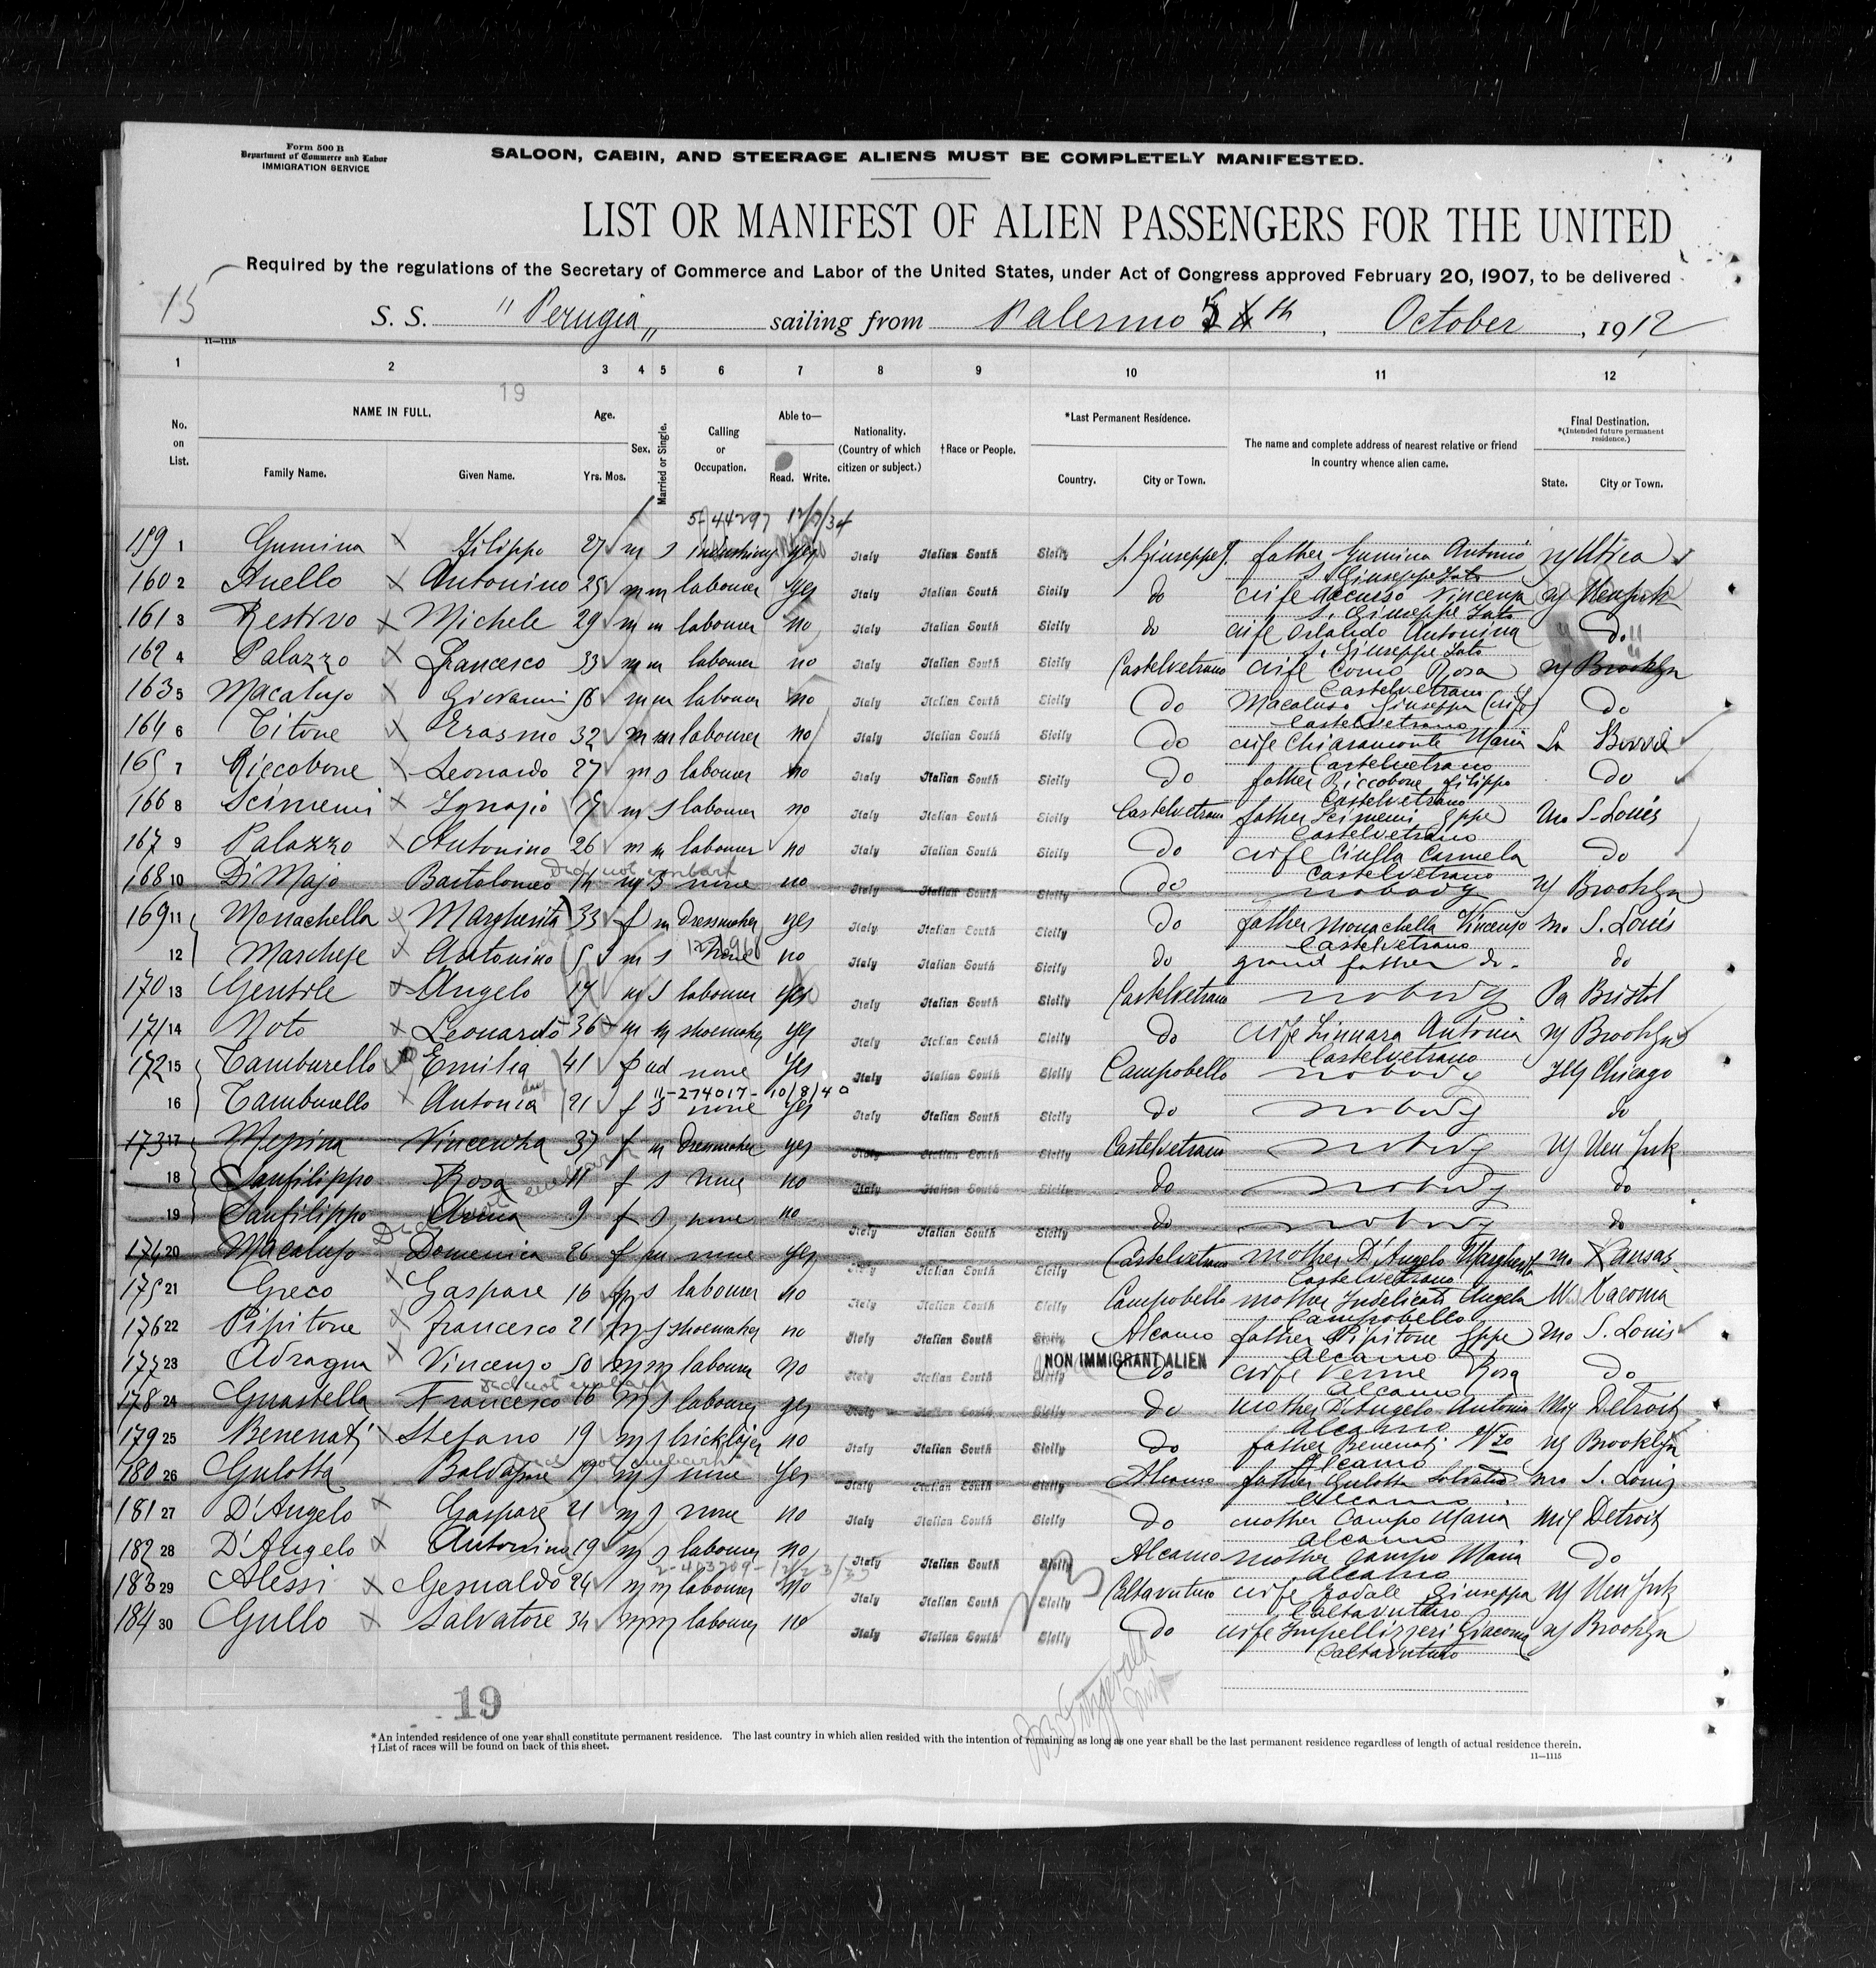 Form 500 B
Department of Commerce and Labor
IMMIGRATION SERVICE
SALOON, CABIN, AND STEERAGE ALIENS MUST BE COMPLETELY MANIFESTED.
LIST OR MANIFEST OF ALIEN PASSENGERS FOR THE UNITED
Required by the regulations of the Secretary of Commerce and Labor of the United States, under Act of Congress approved February 20, 1907, to be delivered
15
S. S. "Perugia" sailing from Palermo 5 th, October, 1912
11—1115
1 2 3 4 5 6 7 8 9 10 11 12
19
No. on List. NAME IN FULL. Family Name. Given Name. Age. Yrs. Mos. Sex. Married or Single. Calling or Occupation. Able to— Read. Write. Nationality. (Country of which citizen or subject.) †Race or People. *Last Permanent Residence. Country. City or Town. The name and complete address of nearest relative or friend in country whence alien came. Final Destination. *(Intended future permanent residence.) State. City or Town.
5-44297 12/7/34
159 1 Gumina Filippo 27 m s yes Italy Italian South Sicily S. Giuseppe J. father Gumina Antonio ny Utica
S. Giuseppe Jato
160 2 Anello Antonino 25 m m labourer yes Italy Italian South Sicily do wife Accurso Vincenza ny New york
S. Giuseppe Jato
161 3 Restivo Michele 29 m m labourer no Italy Italian South Sicily do wife Orlando Antonina do
S. Giuseppe Jato
162 4 Palazzo Francesco 33 m m labourer no Italy Italian South Sicily Castelvetrano wife Como Rosa ny Brooklyn
Castelvetrano
163 5 Macaluso Giovanni 56 m m labourer no Italy Italian South Sicily do Macaluso Giuseppa (wife) do
Castelvetrano
164 6 Titone Erasmo 32 m m labourer no Italy Italian South Sicily do wife Chiaramonte Maria La
Castelvetrano
165 7 Riccobone Leonardo 27 m s labourer no Italy Italian South Sicily do father Riccobone Filippo do
Castelvetrano
166 8 Scimemi Ignazio m s labourer no Italy Italian South Sicily Castelvetrano father Scimemi Gppe Mo S. Louis
Castelvetrano
167 9 Palazzo Antonino 26 m m labourer no Italy Italian South Sicily do wife Ciulla Carmela do
Castelvetrano
Did not embark
168 10 Di Majo Bartolomeo 14 m s none no Italy Italian South Sicily do nobody ny Brooklyn
169 11 Monachella Margherita 33 f m Dressmaker yes Italy Italian South Sicily do father Monachella Vincenzo Mo S. Louis
Castelvetrano
12 Marchese Antonino 5 m s none no Italy Italian South Sicily do grand father do. do
170 13 Gentile Angelo 17 m s labourer yes Italy Italian South Sicily Castelvetrano nobody Pa Bristol
171 14 Noto Leonardo 36 m m shoemaker yes Italy Italian South Sicily do wife Linnara Antonia ny Brooklyn
Castelvetrano
172 15 Tamburello Emilia 41 f wd none yes Italy Italian South Sicily Campobello nobody Ill Chicago
11-274017- 10/8/40
16 Tamburello Antonia 21 f s none yes Italy Italian South Sicily do nobody do
173 17 Messina Vincenza 37 f m Dressmaker yes Italy Italian South Sicily Castelvetrano nobody ny New York
18 Sanfilippo Rosa 11 f s none no Italy Italian South Sicily do nobody do
19 Sanfilippo Anna 9 f s none no Italy Italian South Sicily do nobody do
Did not embark
174 20 Macaluso Domenica 26 f m none yes Italy Italian South Sicily Castelvetrano mother D'Angelo Margherita mo Kansas
Castelvetrano
175 21 Greco Gaspare 16 s labourer no Italy Italian South Sicily Campobello mother Indelicato Angela Tacoma
Campobello
176 22 Pipitone Francesco 21 m s shoemaker no Italy Italian South Sicily Alcamo father Pipitone Gppe Mo S. Louis
Alcamo
NON IMMIGRANT ALIEN
177 23 Adragna Vincenzo 50 m m labourer no Italy Italian South Sicily do wife Verme Rosa do
Alcamo
Did not embark
178 24 Guastella Francesco 16 m s labourer yes Italy Italian South Sicily do mother D'Angelo Antonia Detroit
Alcamo
179 25 Benenati Stefano 19 m s bricklajer no Italy Italian South Sicily do father Benenati Vzo ny Brooklyn
Alcamo
Did not embark
180 26 Gulotta Baldassare 19 m s none yes Italy Italian South Sicily Alcamo father Gulotta Salvatore mo S. Louis
Alcamo
181 27 D'Angelo Gaspare 21 m s none no Italy Italian South Sicily do mother Campo Maria Detroit
Alcamo
182 28 D'Angelo Antonino 19 m s labourer no Italy Italian South Sicily Alcamo mother Campo Maria do
Alcamo
183 29 Alessi Gesualdo 24 m m labourer no Italy Italian South Sicily Caltavuturo wife Giuseppa ny New York
Caltavuturo
184 30 Gullo Salvatore 34 m m labourer no Italy Italian South Sicily do wife Impellizzeri Giacoma ny Brooklyn
Caltavuturo
19
Fitzgerald
*An intended residence of one year shall constitute permanent residence. The last country in which alien resided with the intention of remaining as long as one year shall be the last permanent residence regardless of length of actual residence therein.
†List of races will be found on back of this sheet.
11—1115